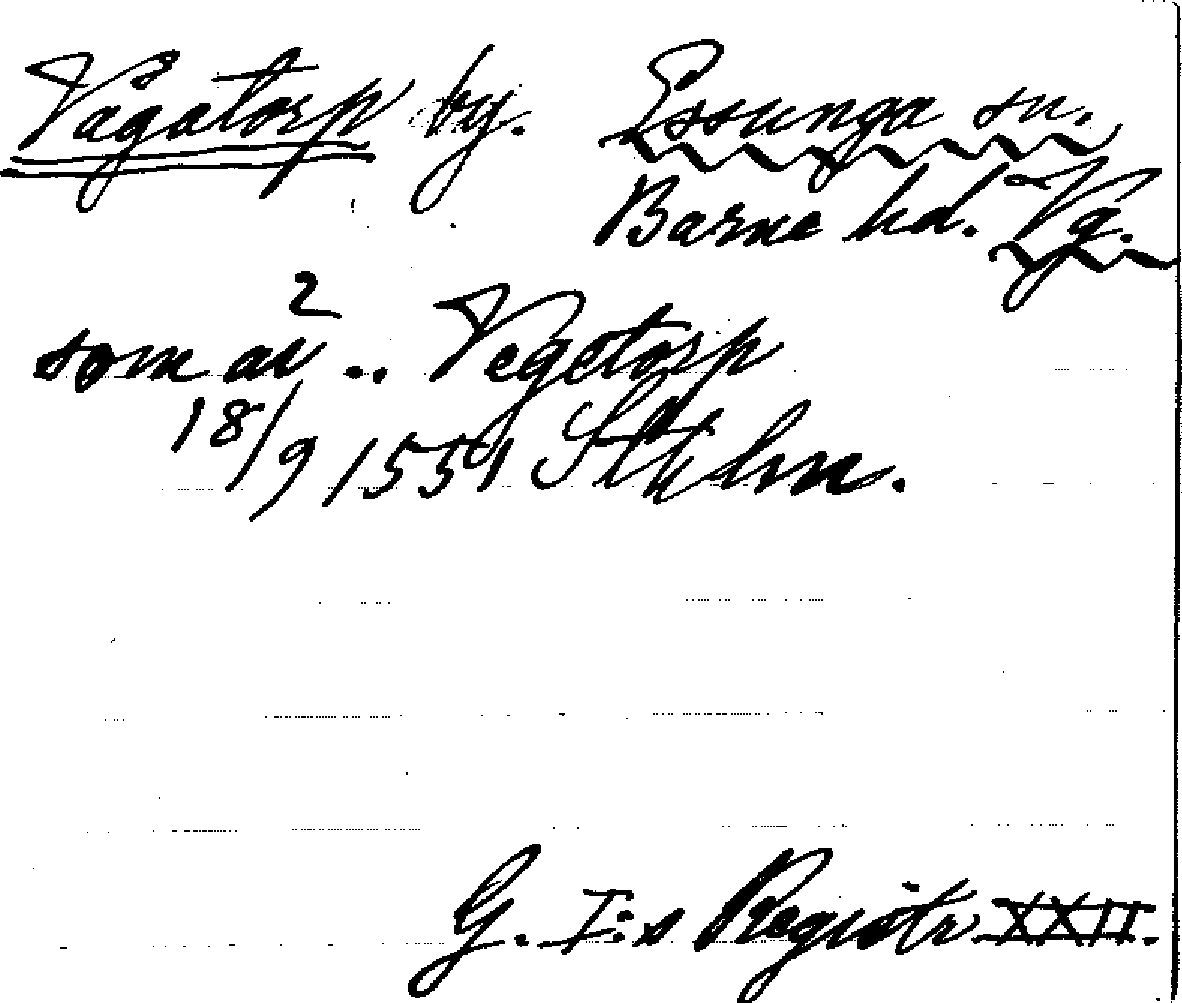 Vågatorp by. Essunga sn.
Barne hd. Vg.
2
som av .. Vegetorp
18/9 1551 Sthlm.
G. I:s Registr XXII.